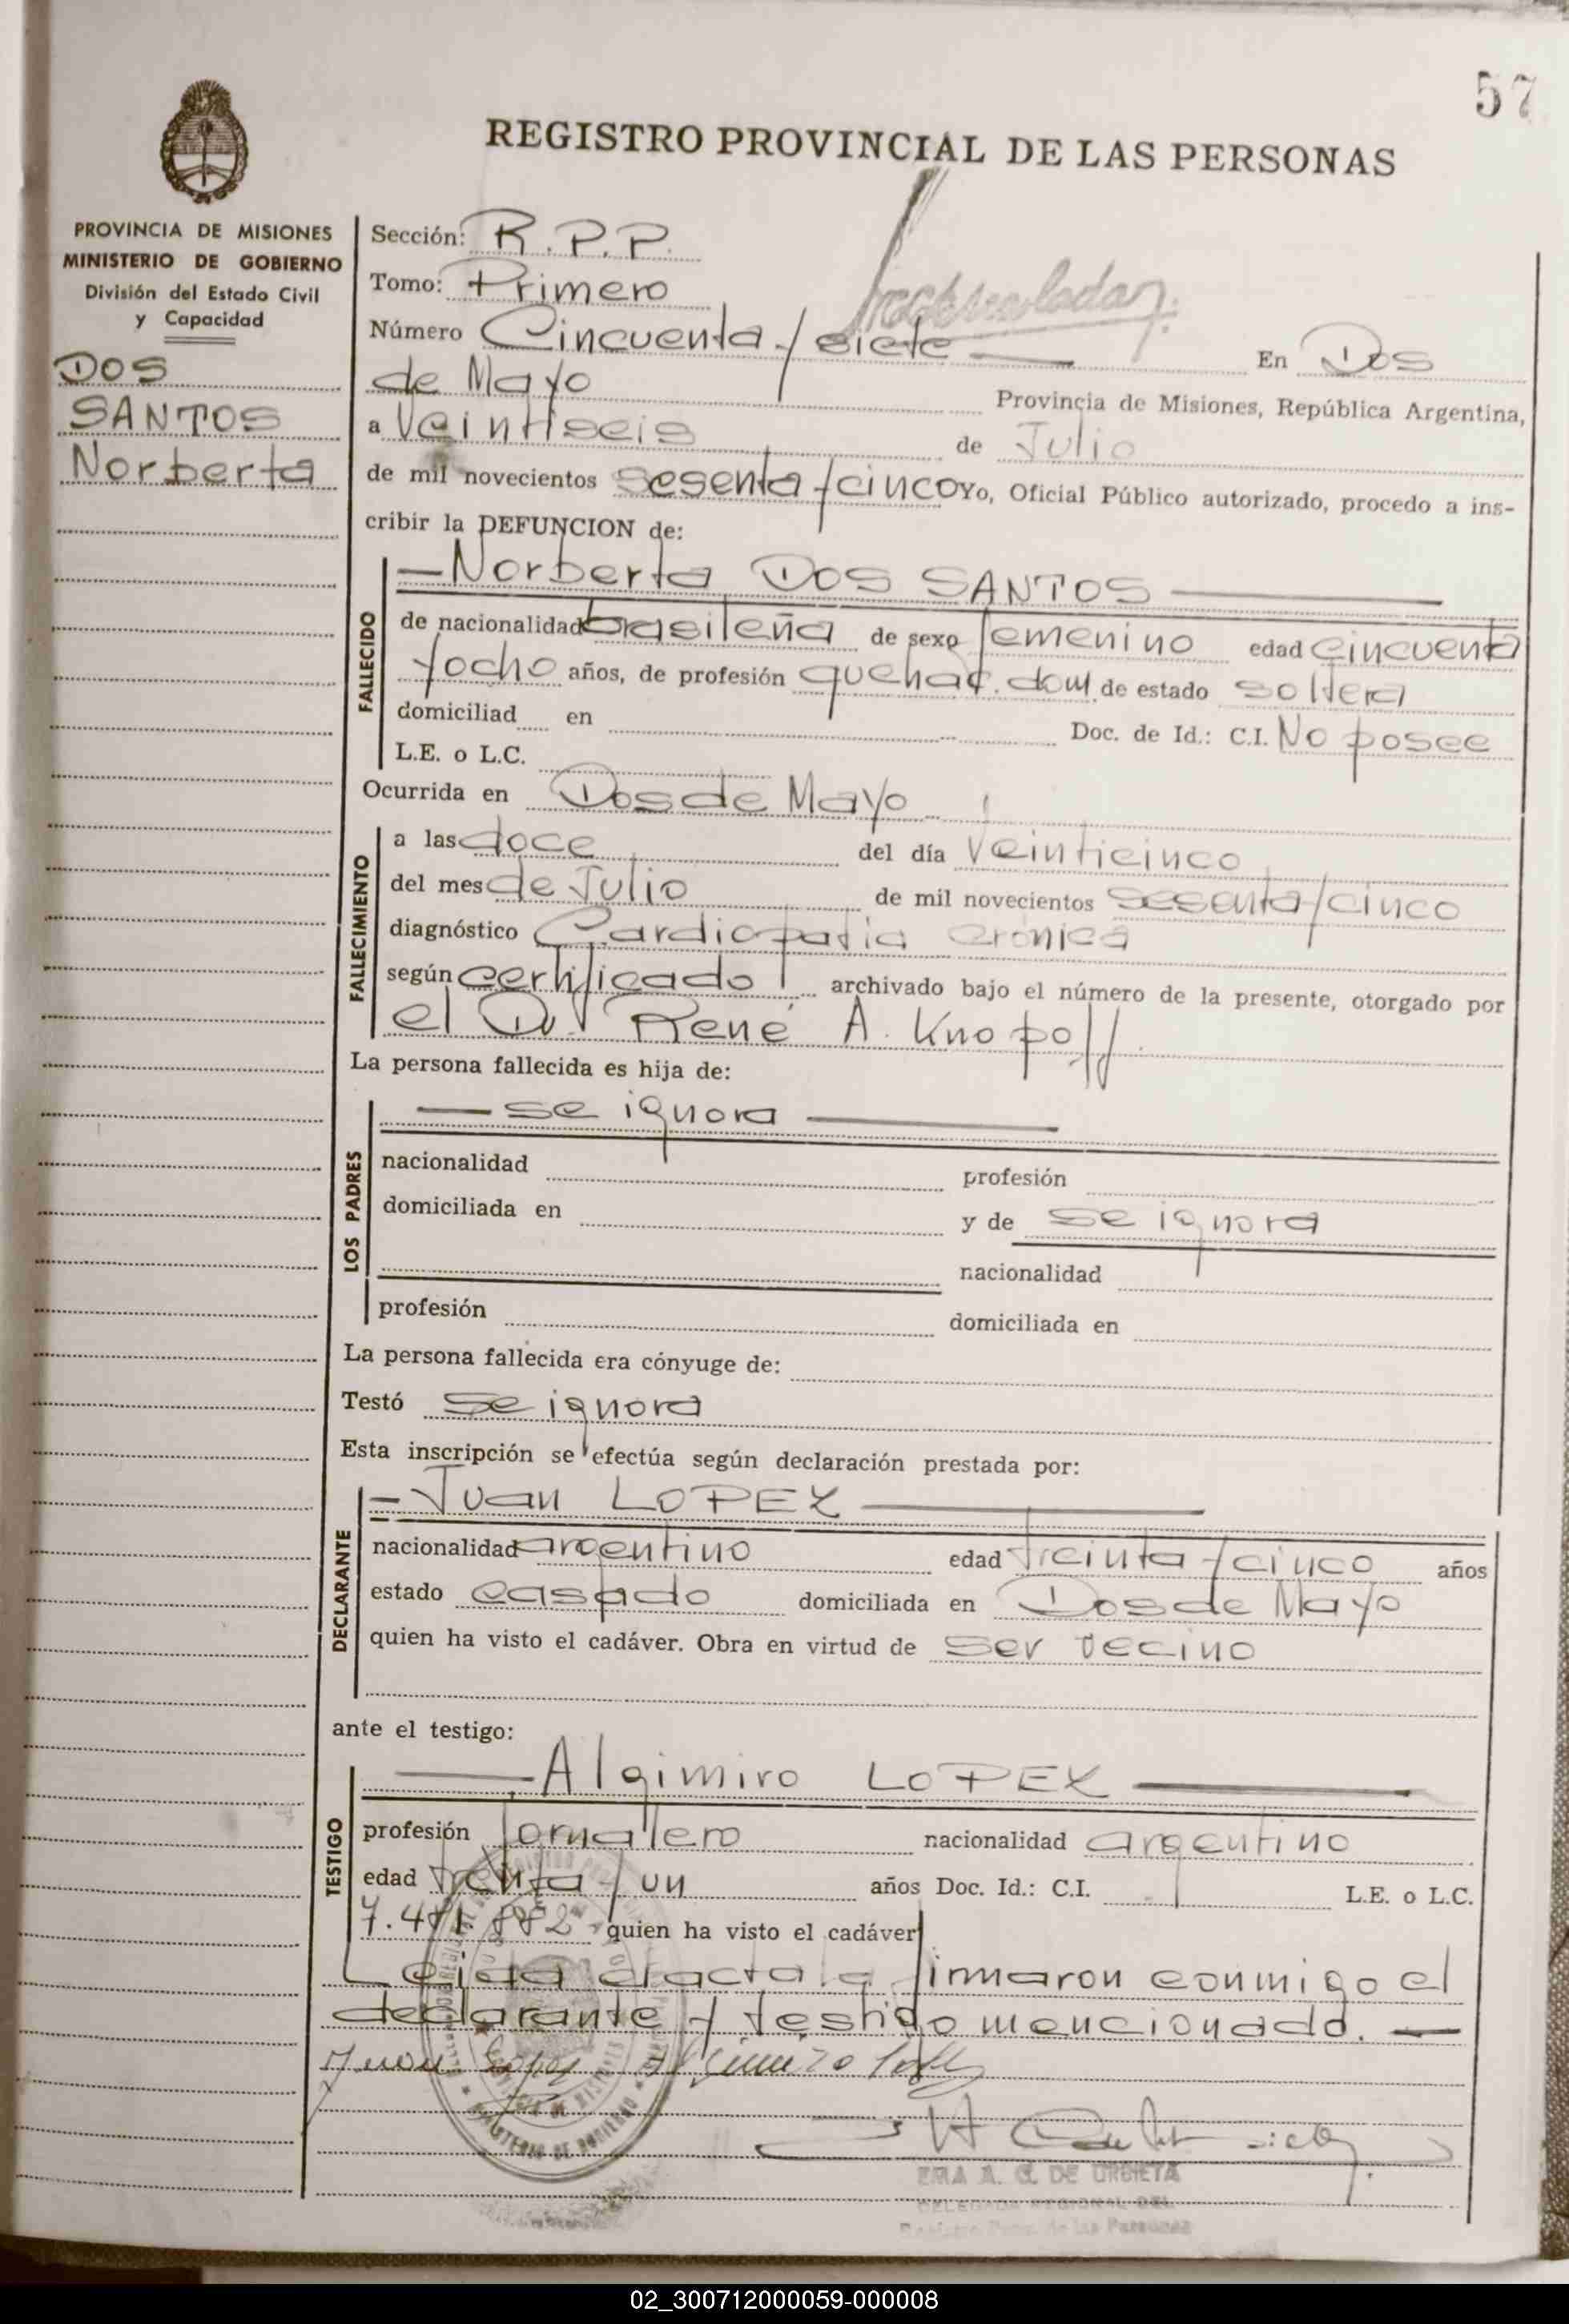 57
REGISTRO PROVINCIAL DE LAS PERSONAS
PROVINCIA DE MISIONES
MINISTERIO DE GOBIERNO
División del Estado Civil
y Capacidad
DOS
SANTOS
Norberta
Sección: R.P.P.
Tomo: Primero
Número Cincuenta y siete En Dos
de Mayo Provincia de Misiones, República Argentina,
a Veintiseis de Julio
de mil novecientos sesenta y cinco Yo, Oficial Público autorizado, procedo a ins-
cribir la DEFUNCION de:
FALLECIDO
Norberta DOS SANTOS
de nacionalidad brasileña de sexo femenino edad cincuenta
y ocho años, de profesión quehac. dom. de estado soltera
domiciliad en Doc. de Id.: C.I. No posee
L.E. o L.C.
Ocurrida en Dos de Mayo
FALLECIMIENTO
a las doce del día Veinticinco
del mes de Julio de mil novecientos sesenta y cinco
diagnóstico Cardiopatia cronica
según certificado archivado bajo el número de la presente, otorgado por
el Dr. René A. Knopoff
La persona fallecida es hija de:
LOS PADRES
— se ignora —
nacionalidad profesión
domiciliada en y de se ignora
nacionalidad
profesión domiciliada en
La persona fallecida era cónyuge de:
Testó se ignora
Esta inscripción se efectúa según declaración prestada por:
DECLARANTE
- Juan LOPEZ
nacionalidad argentino edad Treinta y cinco años
estado casado domiciliada en Dos de Mayo
quien ha visto el cadáver. Obra en virtud de ser vecino
ante el testigo:
TESTIGO
Algimiro LOPEZ
profesión Jornalero nacionalidad argentino
edad treinta y un años Doc. Id.: C.I. L.E. o L.C.
quien ha visto el cadáver
Leida el acta la firmaron conmigo el
declarante y testigo mencionado. —
Juan Lopez Algimiro
MINISTERIO DE GOBIERNO
A. G. DE URBIETA
DELEGADA REGIONAL DEL
Registro Prov. de las Personas
02_300712000059-000008